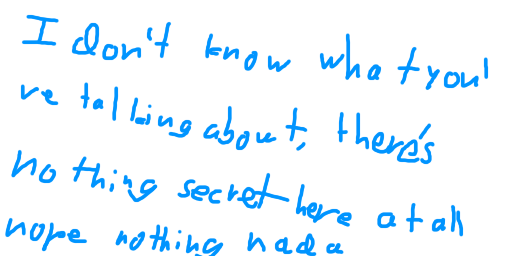 I don't know what you'
re talking about, there's
nothing secret here at all
nope nothing nada